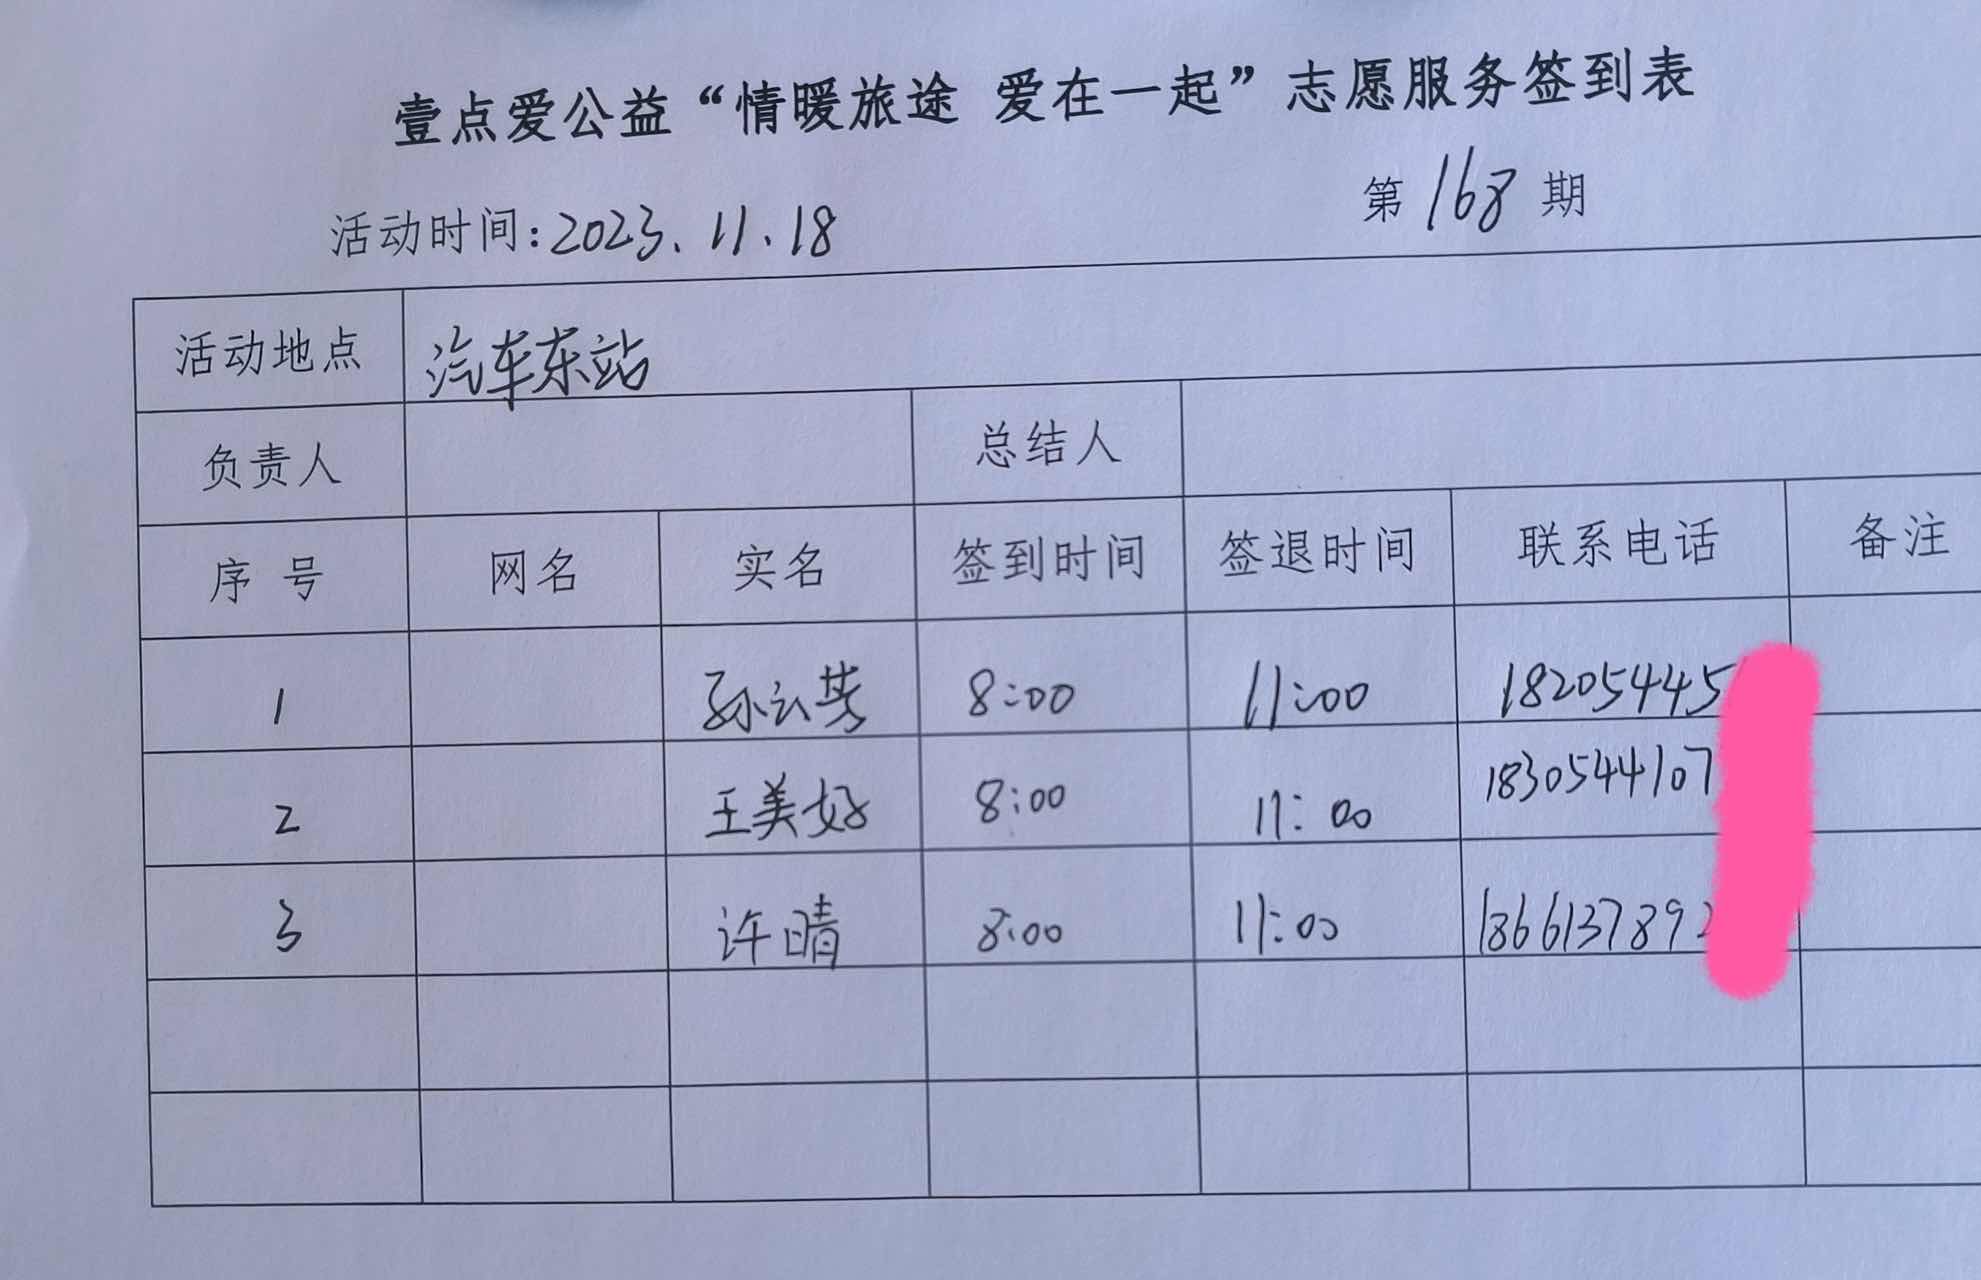 壹点爱公益“情暖旅途 爱在一起”志愿服务签到表
第168期
活动时间:2023.11.18
活动地点 汽车东站
负责人 总结人
序 号 网名 实名 签到时间 签退时间 联系电话 备注
1 孙云芳 8:00 11:00 182054445
2 王美好 8:00 11:00 1830544107
3 许晴 8:00 11:00 1866137892